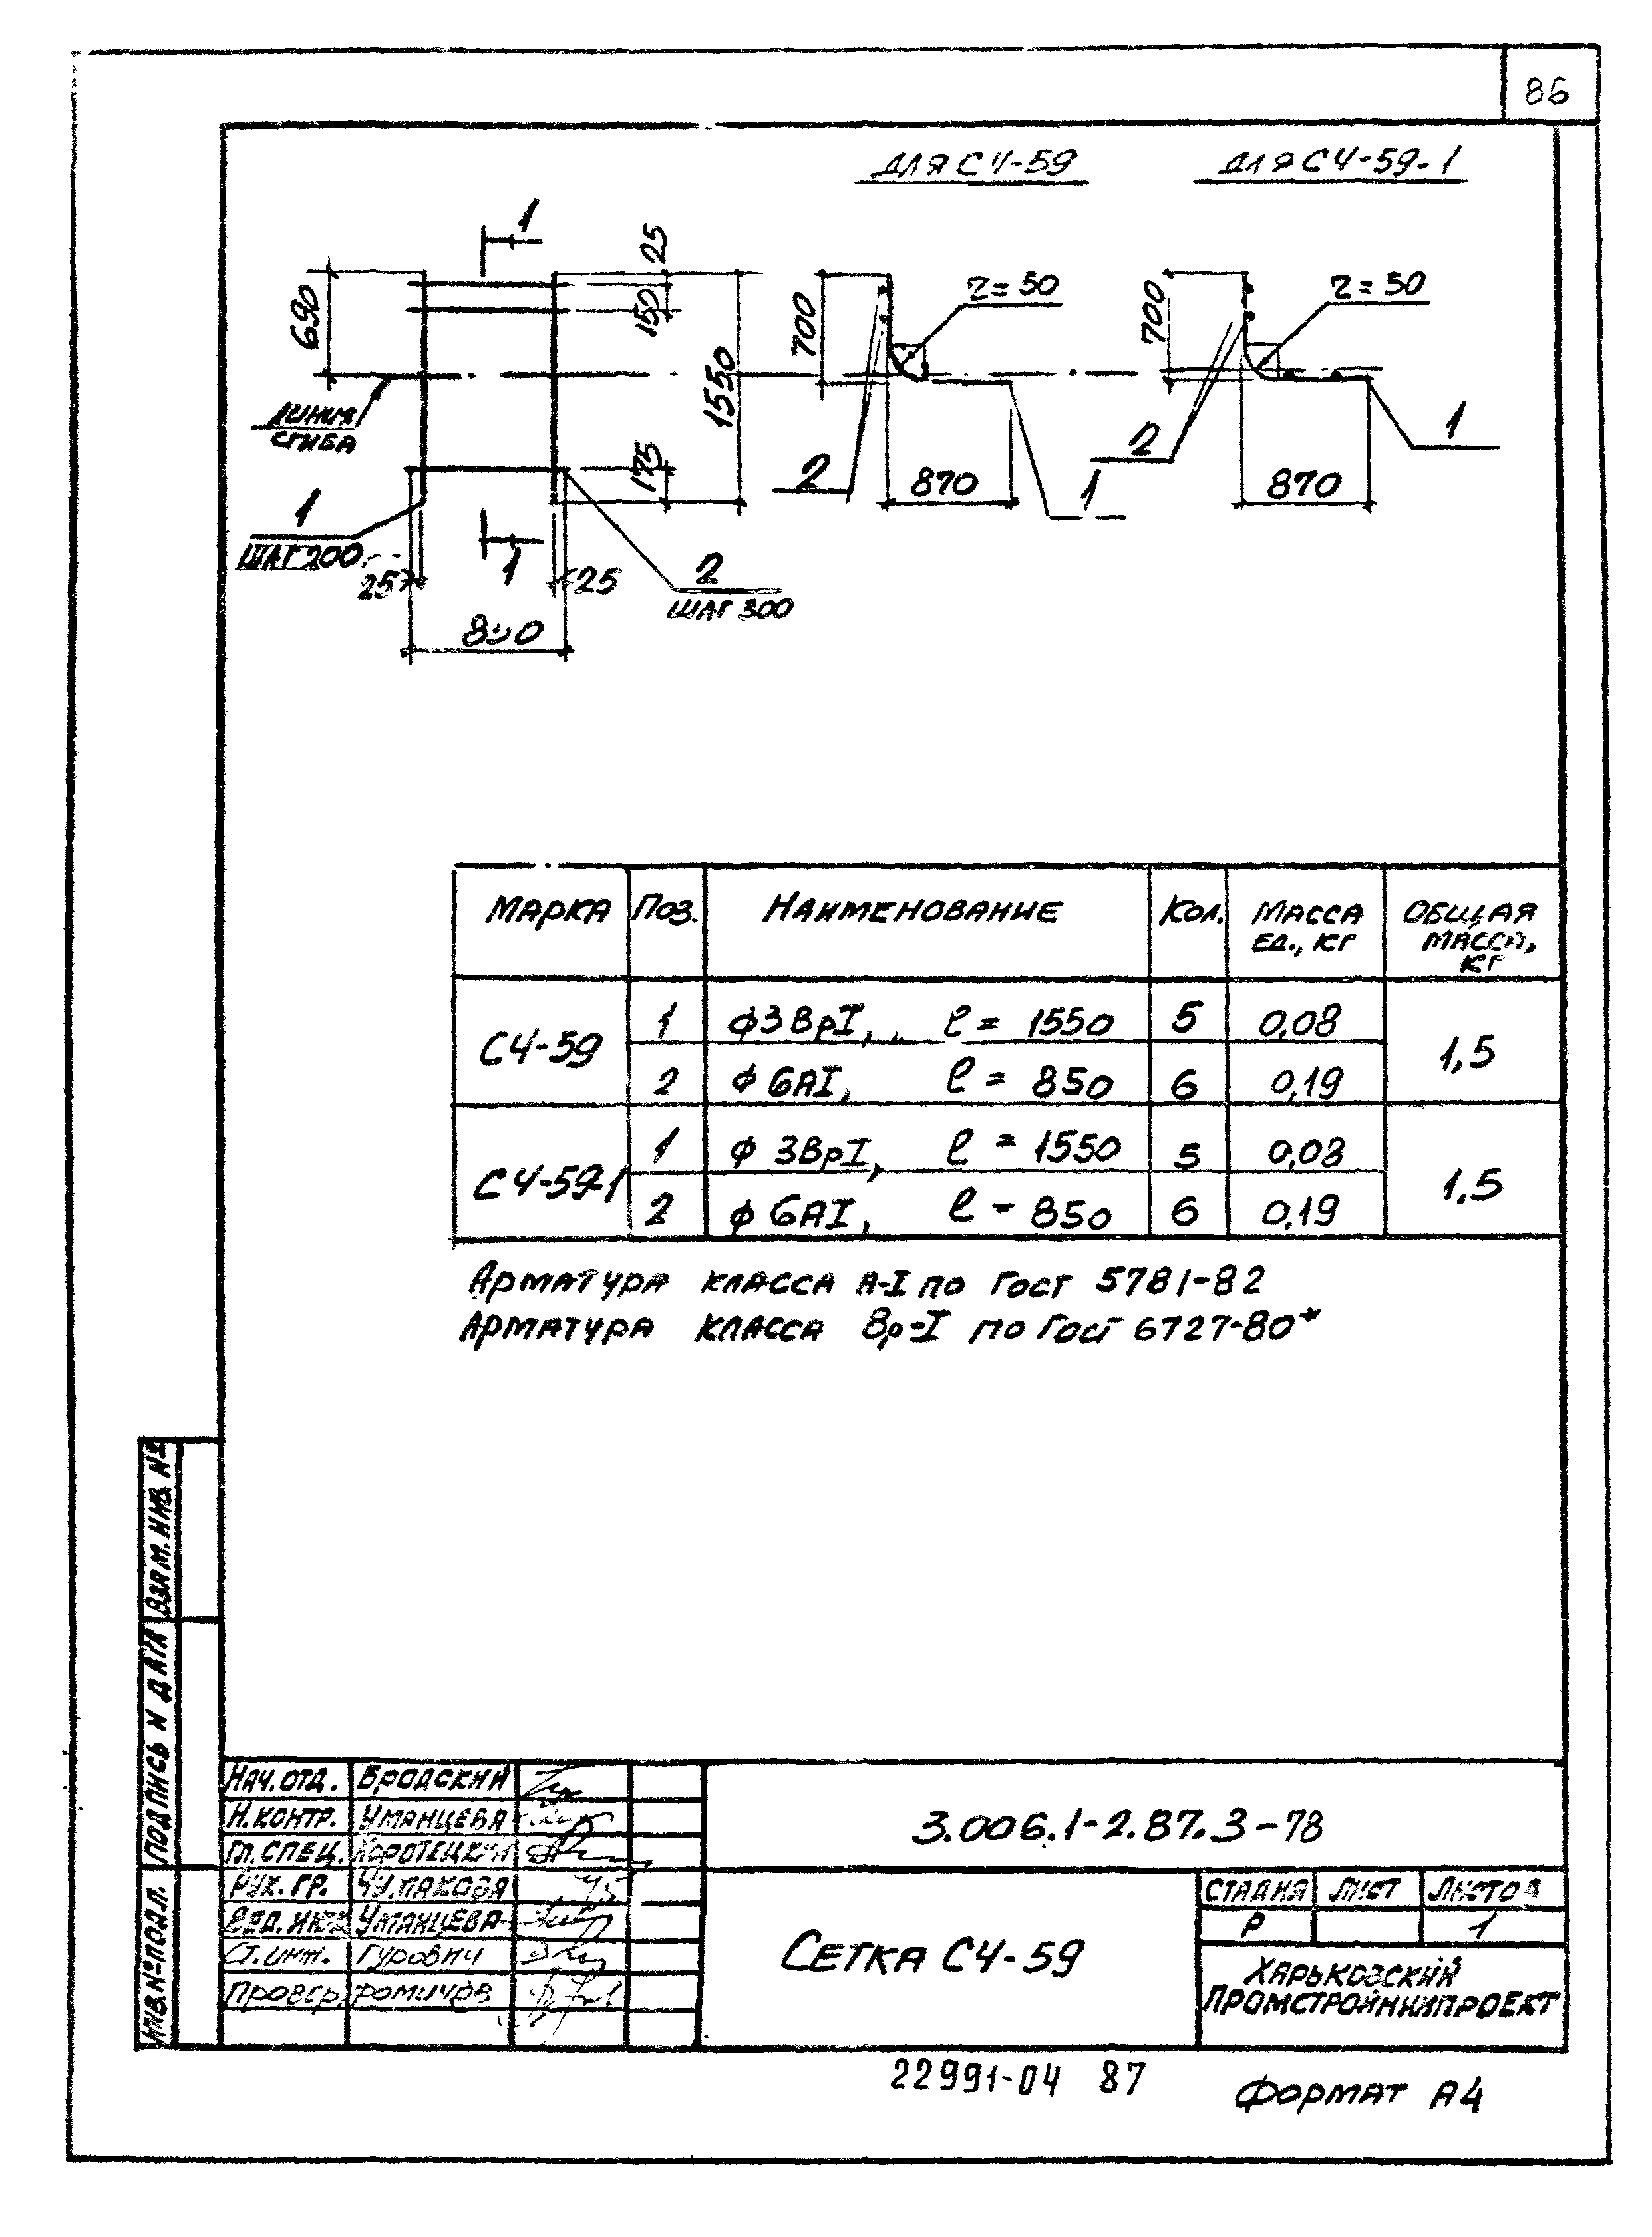 86
ДЛЯ С4-59
ДЛЯ С4-59-1
1
690
25
150
1550
175
ЛИНИЯ
СГИБА
1
ШАГ 200
25
1
25
2
ШАГ 300
800
700
r = 50
2
870
1
700
r = 50
2
870
1
МАРКА ПОЗ. НАИМЕНОВАНИЕ КОЛ. МАССА ЕД., КГ ОБЩАЯ МАССА, КГ
С4-59 1 ф3ВрI, ℓ = 1550 5 0,08 1,5
2 ф6АI, ℓ = 850 6 0,19
С4-59-1 1 ф 3ВрI, ℓ = 1550 5 0,08 1,5
2 ф 6АI, ℓ - 850 6 0,19
АРМАТУРА КЛАССА А-I ПО ГОСТ 5781-82
АРМАТУРА КЛАССА Вр-I ПО ГОСТ 6727-80*
ВЗАМ. ИНВ. №
ПОДПИСЬ И ДАТА
ИНВ. № ПОДЛ.
НАЧ. ОТД. БРОДСКИЙ
Н. КОНТР. УМАНЦЕВА
ГЛ. СПЕЦ. КОРОТЕЦКИЙ
РУК. ГР.
ВЕД. ИНЖ. УМАНЦЕВА
СТ. ИНЖ. ГУРОВИЧ
ПРОВЕР. ФОМИЧЕВ
3.006.1-2.87.3-78
СЕТКА С4-59
СТАДИЯ ЛИСТ ЛИСТОВ
Р 1
ХАРЬКОВСКИЙ
ПРОМСТРОЙНИИПРОЕКТ
22991-04 87
ФОРМАТ А4